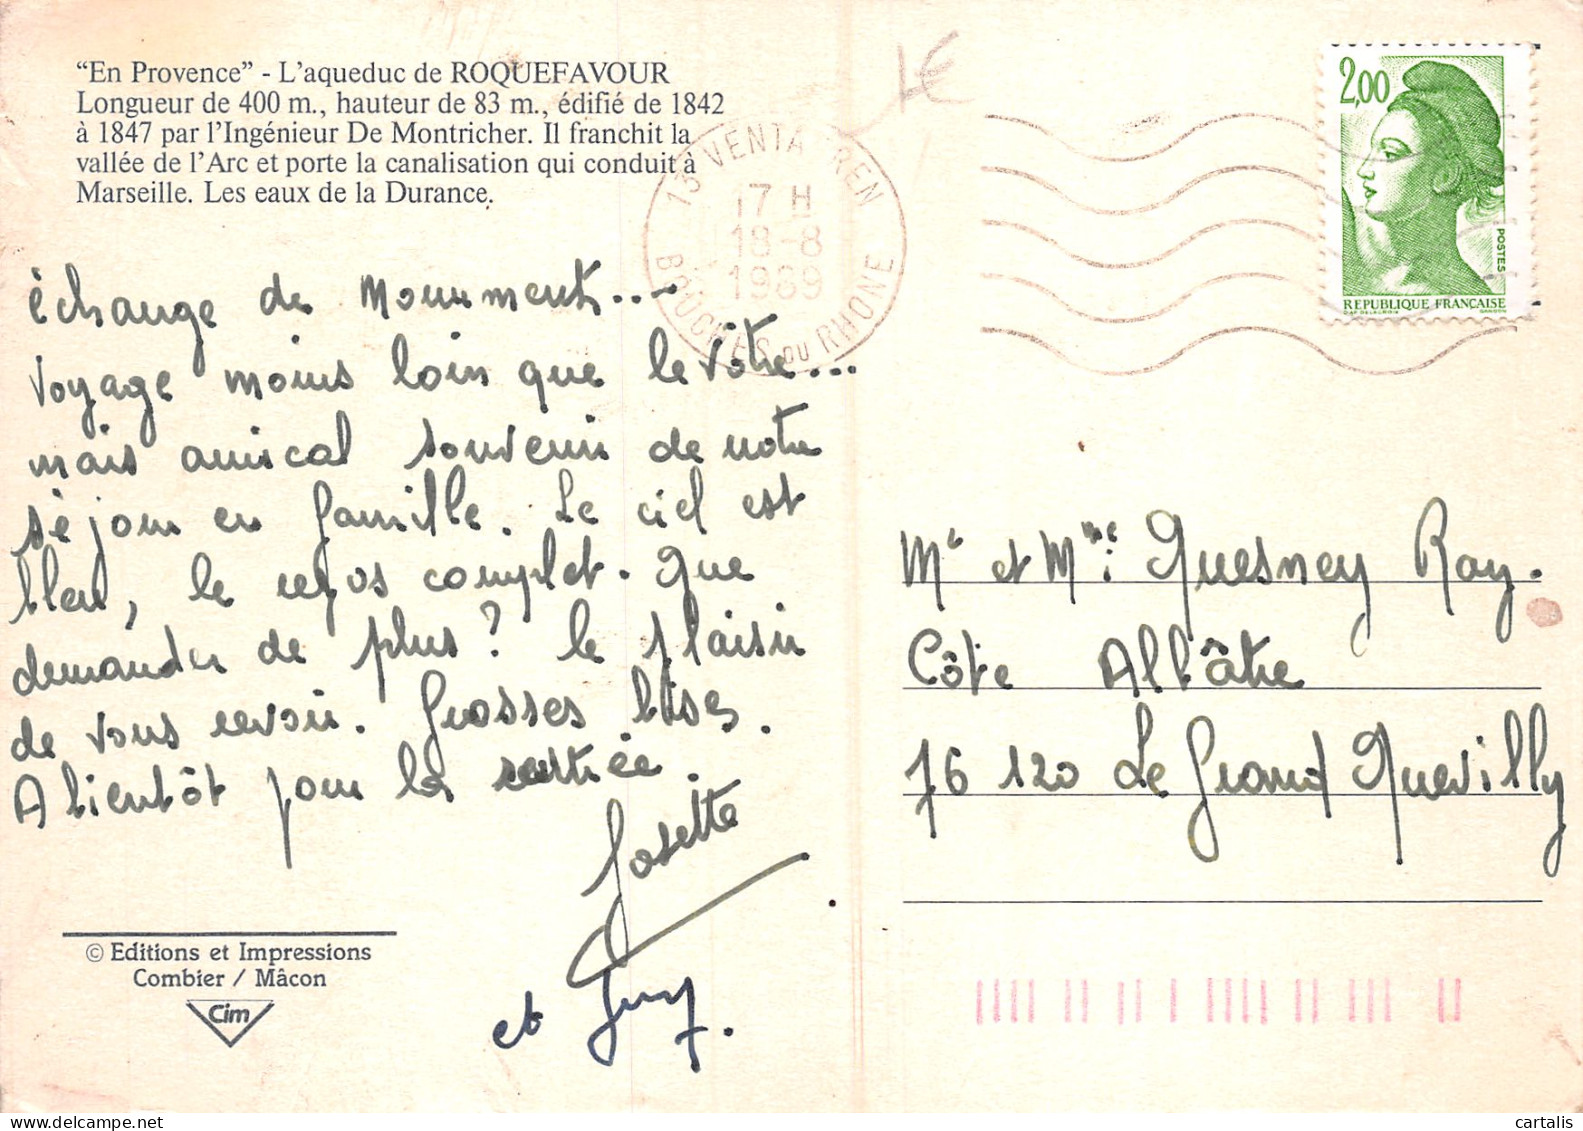 “En Provence” - L’aqueduc de ROQUEFAVOUR
Longueur de 400 m., hauteur de 83 m., édifié de 1842
à 1847 par l’Ingénieur De Montricher. Il franchit la
vallée de l’Arc et porte la canalisation qui conduit à
Marseille. Les eaux de la Durance.
échange de Monuments...
voyage moins loin que le vôtre...
mais amical souvenir de notre
séjour en famille. Le ciel est
bleu, le repos complet. Que
demander de plus ? le plaisir
de vous revoir. Grosses bises.
A bientôt pour la rentrée.
Josette
et Guy.
© Editions et Impressions
Combier / Mâcon
Cim
1€
13 VENTABREN
17 H
18-8
1989
BOUCHES DU RHONE
2,00
POSTES
REPUBLIQUE FRANÇAISE
D'AP. DELACROIX GANDON
Mr et Mme Quesney Ray.
Côte Albâtre
76 120 Le Grand Quevilly
cartalis